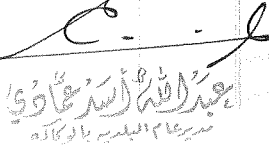 عبدالله أسد عمّادي
مدير عام البلدية بالوكالة